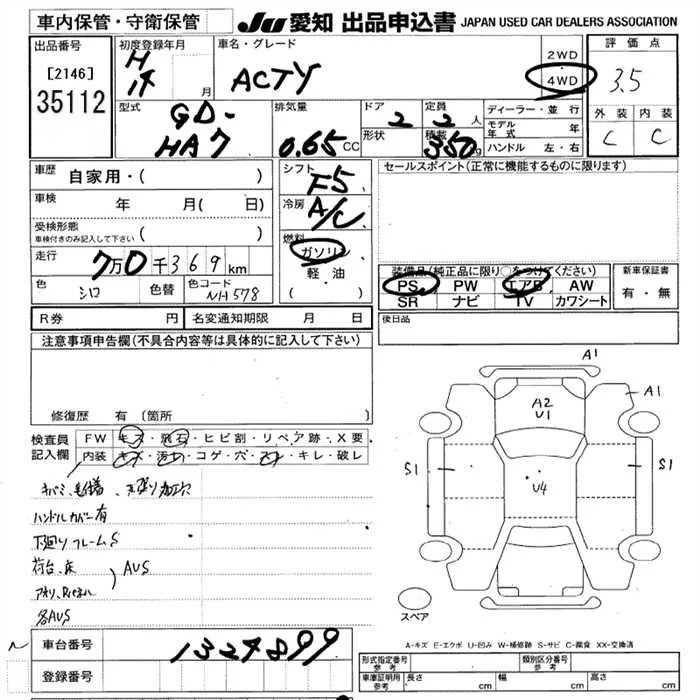 車内保管・守衛保管
JU 愛知 出品申込書 JAPAN USED CAR DEALERS ASSOCIATION
出品番号
[2146]
35112
初度登録年月
H
14 月
車名・グレード
ACTY
2WD
4WD
評価点
3.5
外装 内装
C C
型式
GD-
HA7
排気量
0.65 CC
ドア 2
形状
定員 2 人
積載 350 kg
ディーラー・並行
モデル年式 年
ハンドル 左・右
車歴 自家用・( )
車検 年 月( 日)
受検形態
車検付きのみ記入して下さい ( )
走行 7万0千369km
色 シロ 色替 色コード NH578
シフト F5
冷房 A/C
燃料
ガソリン
軽油
(・)
セールスポイント(正常に機能するものに限ります)
装備品(純正品に限り○をつけてください)
PS PW エアB AW
SR ナビ TV カワシート
新車保証書
有・無
R券 円 名変通知期限 月 日
後日品
注意事項申告欄(不具合内容等は具体的に記入して下さい)
修復歴 有 (箇所
検査員
記入欄
FW キズ・飛石・ヒビ割・リペア跡・X要
内装 キズ・汚れ・コゲ・穴・スレ・キレ・破レ
ハンドルカバー有
下廻りフレームS
荷台、床
AUS
各AUS
A1
A1
A2
U1
S1
S1
U4
スペア
A-キズ E-エクボ U-凹み W-補修跡 S-サビ C-腐食 XX-交換済
車台番号 1324899
登録番号
形式指定番号
参考
類別区分番号
参考
車庫証明用
参考
長さ cm 幅 cm 高さ cm